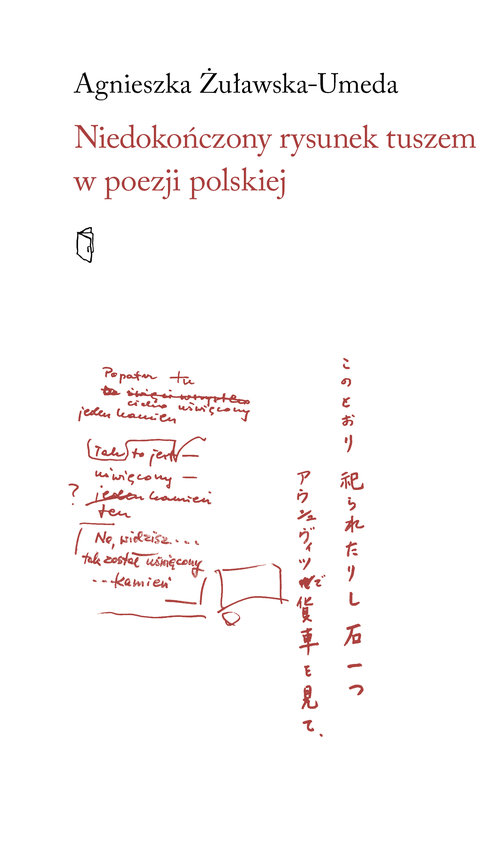 Agnieszka Żuławska-Umeda
Niedokończony rysunek tuszem
w poezji polskiej
Popatrz tu
święci wszystko
cicho uświęcony
jeden kamień
Tak to jest —
uświęcony —
? jeden kamień
ten
No, widzisz...
tak został uświęcony
...kamień
このとおり 祀られたりし 石一つ
アウシュヴィツで貨車を見て、